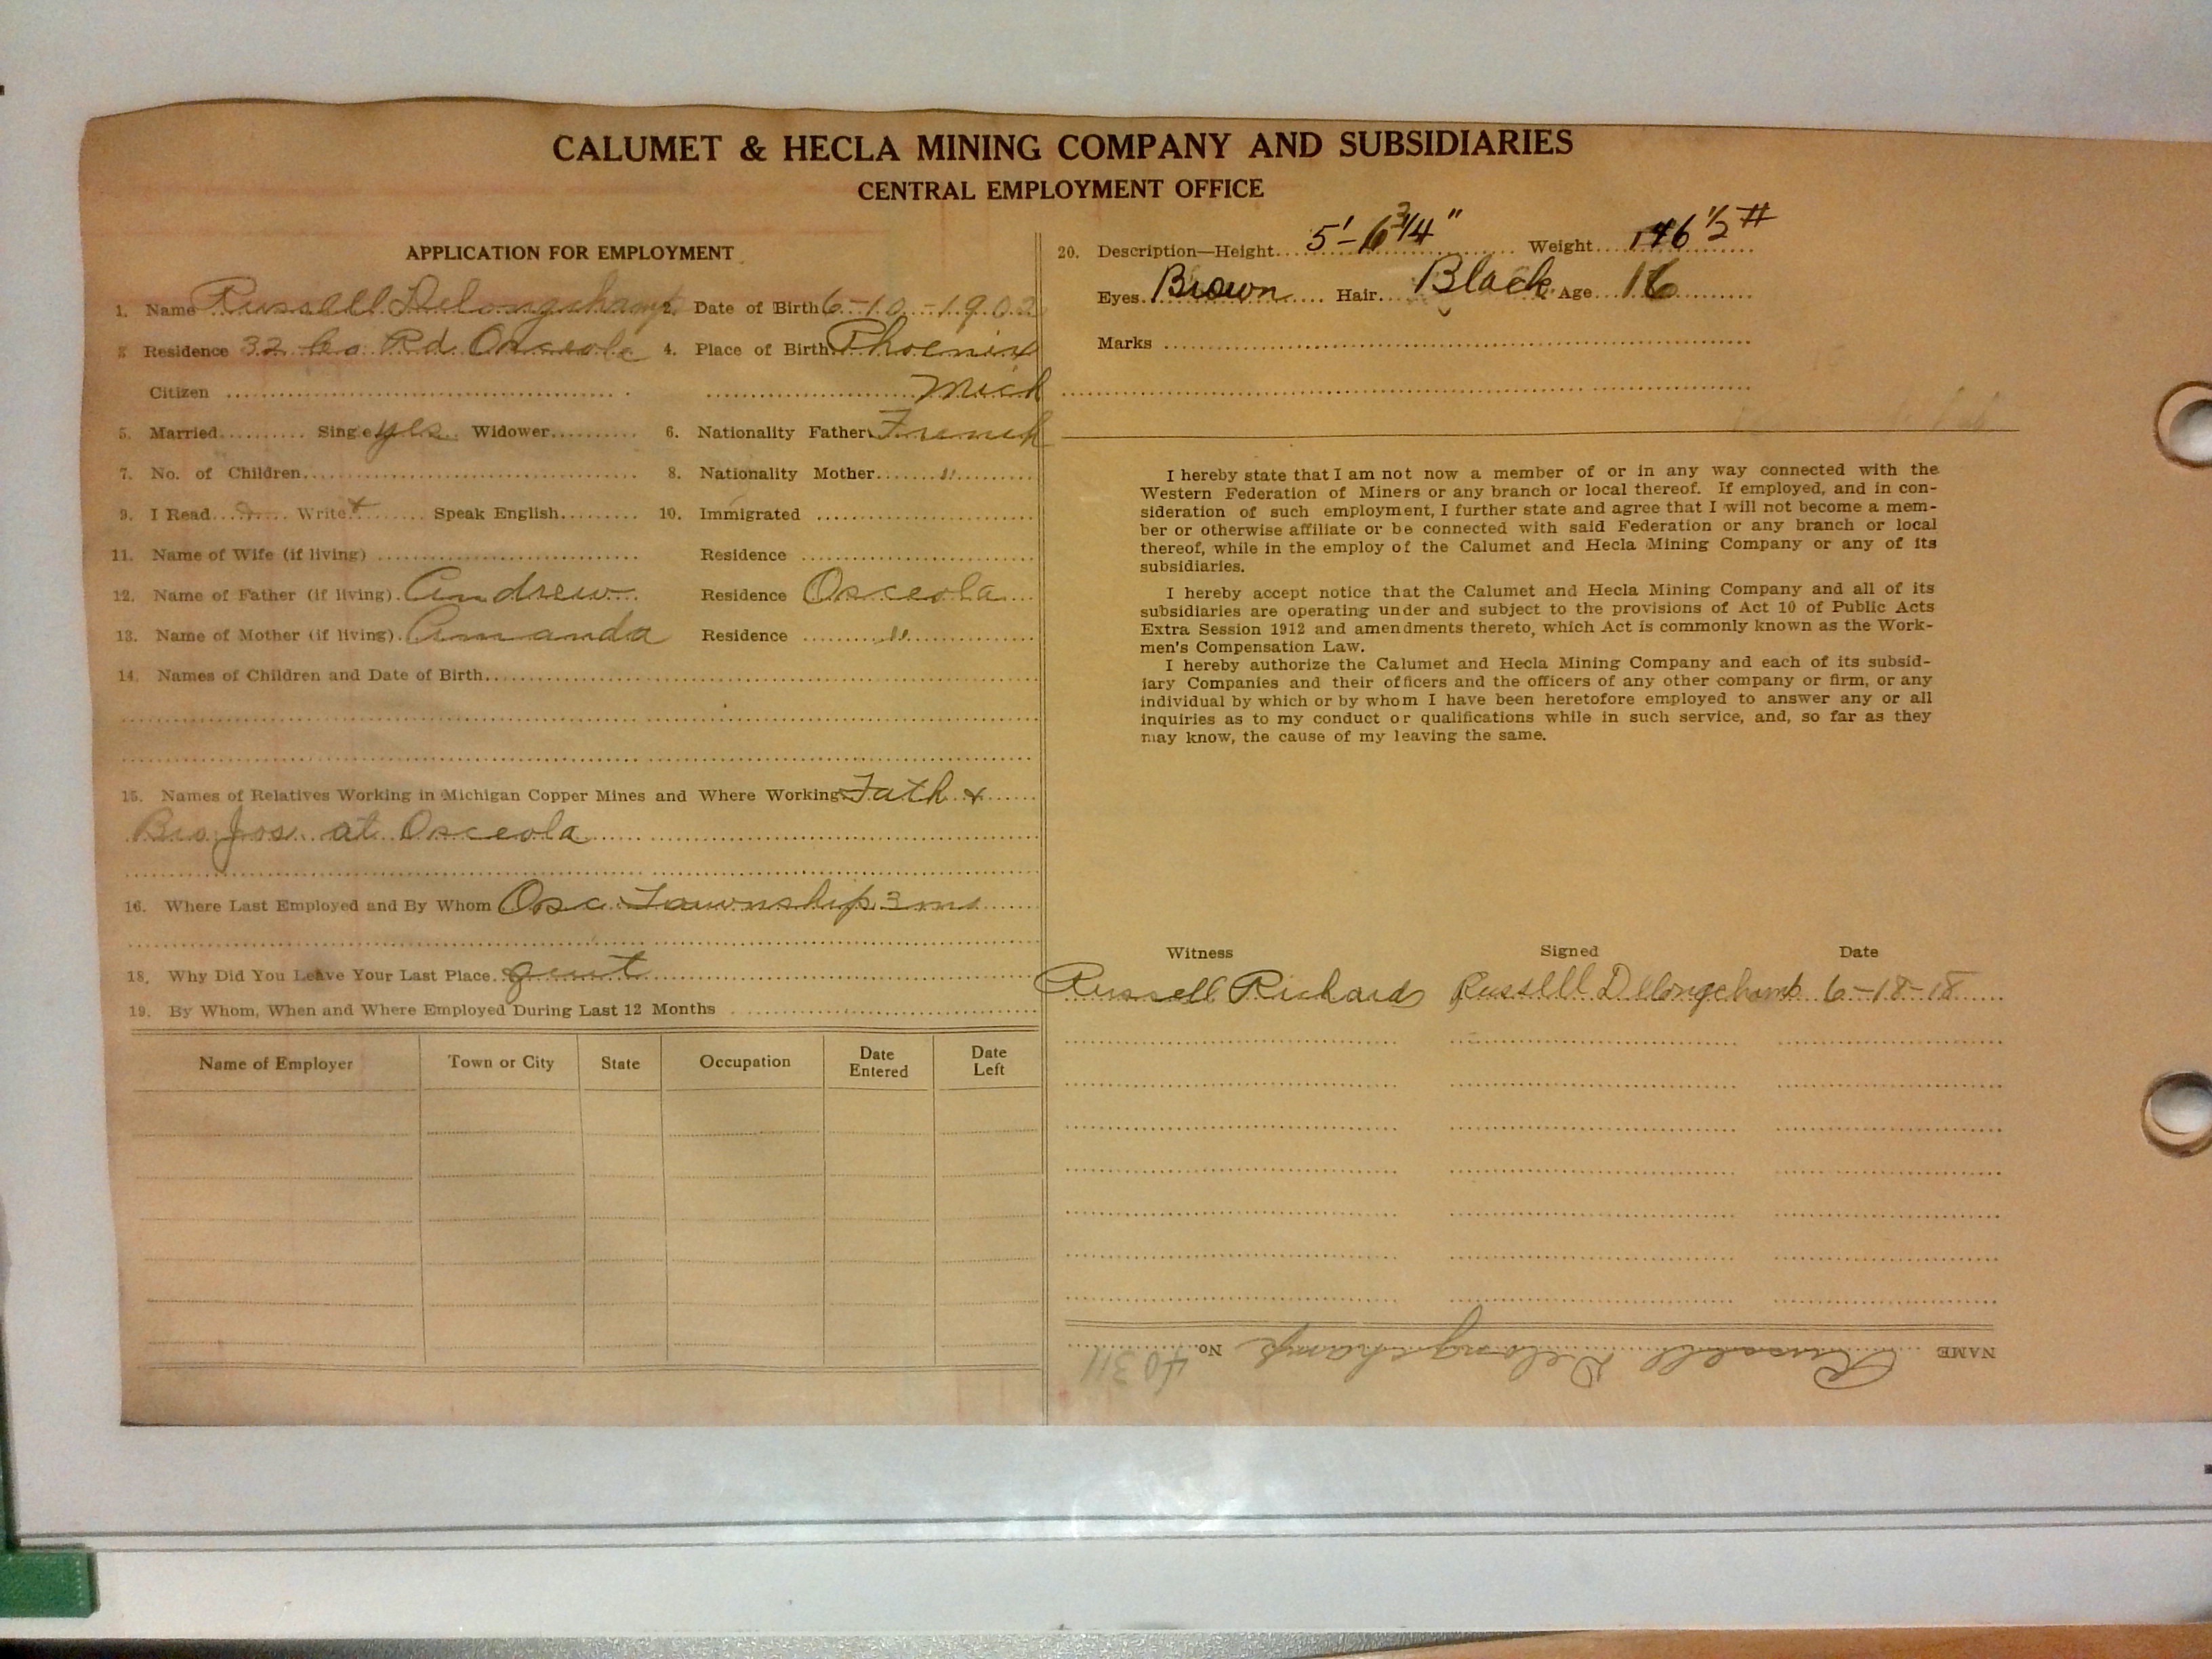 CALUMET & HECLA MINING COMPANY AND SUBSIDIARIES
CENTRAL EMPLOYMENT OFFICE
APPLICATION FOR EMPLOYMENT
1. Name Russell Delongchamp 2. Date of Birth 6-10-1902
3 Residence 32 Co Rd Osceola 4. Place of Birth Phoenix
Citizen Mich
5. Married Single yes Widower 6. Nationality Father French
7. No. of Children 8. Nationality Mother "
9. I Read Write Speak English 10. Immigrated
11. Name of Wife (if living) Residence
12. Name of Father (if living) Andrew Residence Osceola
13. Name of Mother (if living) Amanda Residence "
14. Names of Children and Date of Birth
15. Names of Relatives Working in Michigan Copper Mines and Where Working Fath &
Bro Jos. at Osceola
16. Where Last Employed and By Whom Osc Township 3 ms
18. Why Did You Leave Your Last Place quit
19. By Whom, When and Where Employed During Last 12 Months
Name of Employer Town or City State Occupation Date Entered Date Left
20. Description—Height 5'-6 3/4" Weight 146 1/2 #
Eyes Brown Hair Black Age 16
Marks
I hereby state that I am not now a member of or in any way connected with the
Western Federation of Miners or any branch or local thereof. If employed, and in con-
sideration of such employment, I further state and agree that I will not become a mem-
ber or otherwise affiliate or be connected with said Federation or any branch or local
thereof, while in the employ of the Calumet and Hecla Mining Company or any of its
subsidiaries.
I hereby accept notice that the Calumet and Hecla Mining Company and all of its
subsidiaries are operating under and subject to the provisions of Act 10 of Public Acts
Extra Session 1912 and amendments thereto, which Act is commonly known as the Work-
men's Compensation Law.
I hereby authorize the Calumet and Hecla Mining Company and each of its subsid-
iary Companies and their officers and the officers of any other company or firm, or any
individual by which or by whom I have been heretofore employed to answer any or all
inquiries as to my conduct or qualifications while in such service, and, so far as they
may know, the cause of my leaving the same.
Witness Signed Date
Russell Richards Russell Delongchamp 6-18-18
NAME Russell Delongchamp No. 40311